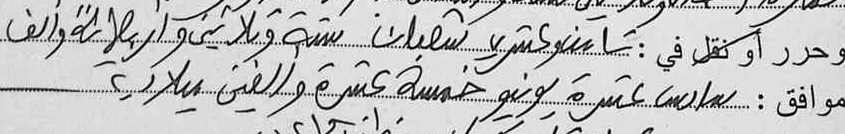 وحرر أو نقل في : ثامن وعشرين شعبان ستة وثلاثين وأربعمائة وألف
موافق : سادس عشرة يونيو خمسة عشرة وألفين ميلادية